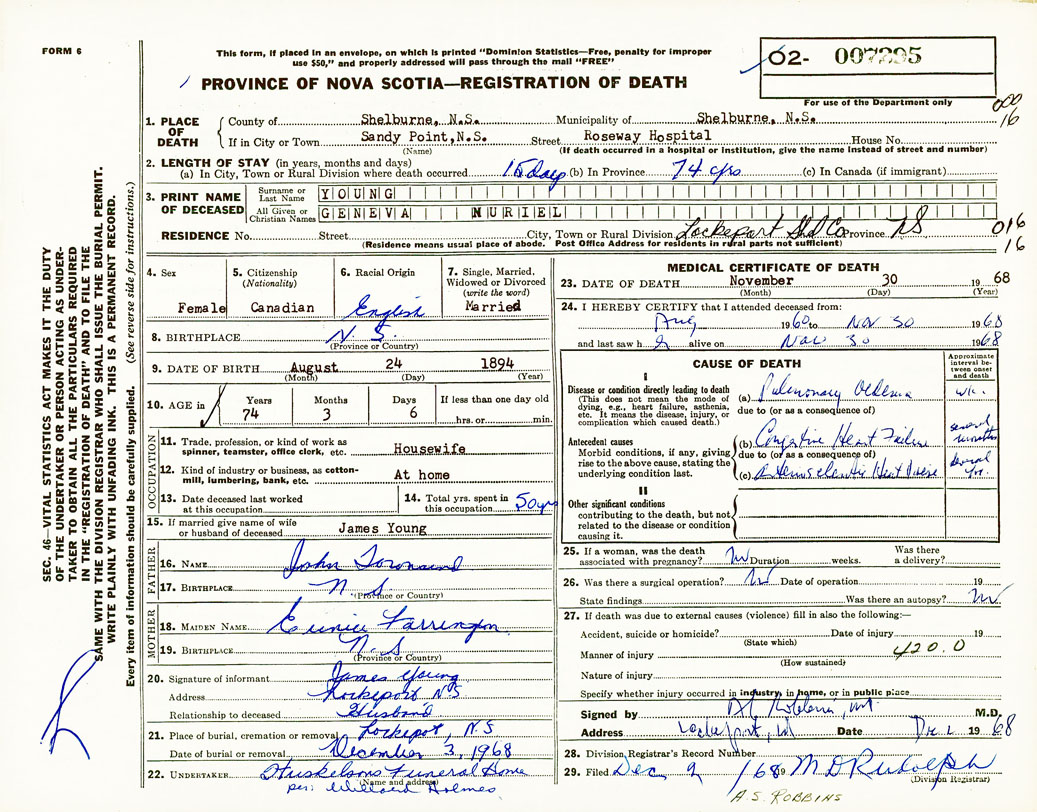 FORM 6
This form, if placed in an envelope, on which is printed "Dominion Statistics—Free, penalty for improper
use $50," and properly addressed will pass through the mail "FREE"
PROVINCE OF NOVA SCOTIA—REGISTRATION OF DEATH
02- 007295
For use of the Department only
000
16
SEC. 46—VITAL STATISTICS ACT MAKES IT THE DUTY
OF THE UNDERTAKER OR PERSON ACTING AS UNDER-
TAKER TO OBTAIN ALL THE PARTICULARS REQUIRED
IN THE "REGISTRATION OF DEATH" AND TO FILE THE
SAME WITH THE DIVISION REGISTRAR WHO SHALL ISSUE THE BURIAL PERMIT.
WRITE PLAINLY WITH UNFADING INK. THIS IS A PERMANENT RECORD.
Every item of information should be carefully supplied. (See reverse side for instructions.)
1. PLACE OF DEATH
County of Shelburne, N.S. Municipality of Shelburne, N.S.
If in City or Town Sandy Point, N.S. Street Roseway Hospital House No.
(Name) (If death occurred in a hospital or institution, give the name instead of street and number)
2. LENGTH OF STAY (in years, months and days)
(a) In City, Town or Rural Division where death occurred 15 days (b) In Province 74 yrs (c) In Canada (if immigrant)
3. PRINT NAME OF DECEASED
Surname or Last Name YOUNG
All Given or Christian Names GENEVA MURIEL
RESIDENCE No. Street City, Town or Rural Division Lockeport Shel Co Province NS
(Residence means usual place of abode. Post Office Address for residents in rural parts not sufficient)
016
16
4. Sex
Female
5. Citizenship
(Nationality)
Canadian
6. Racial Origin
English
7. Single, Married,
Widowed or Divorced
(write the word)
Married
8. BIRTHPLACE N.S.
(Province or Country)
9. DATE OF BIRTH August 24 1894
(Month) (Day) (Year)
10. AGE in
Years Months Days If less than one day old
74 3 6 hrs. or min.
OCCUPATION
11. Trade, profession, or kind of work as
spinner, teamster, office clerk, etc. Housewife
12. Kind of industry or business, as cotton-
mill, lumbering, bank, etc. At home
13. Date deceased last worked
at this occupation
14. Total yrs. spent in
this occupation 50 yrs
15. If married give name of wife
or husband of deceased James Young
FATHER
16. NAME John Townsend
17. BIRTHPLACE N S
(Province or Country)
MOTHER
18. MAIDEN NAME Eunice Farrington
19. BIRTHPLACE N. S
(Province or Country)
20. Signature of informant James Young
Address Lockeport N S
Relationship to deceased Husband
21. Place of burial, cremation or removal Lockeport, N.S
Date of burial or removal December 3, 1968
22. UNDERTAKER Huskelsons Funeral Home
(Name and address)
per: Willard Holmes
MEDICAL CERTIFICATE OF DEATH
23. DATE OF DEATH November 30 1968
(Month) (Day) (Year)
24. I HEREBY CERTIFY that I attended deceased from:
Aug 1960 to Nov 30 1968
and last saw h alive on Nov 30 1968
CAUSE OF DEATH
Approximate
interval be-
tween onset
and death
I
Disease or condition directly leading to death
(This does not mean the mode of
dying, e.g., heart failure, asthenia,
etc. It means the disease, injury, or
complication which caused death.)
(a) Pulmonary Oedema
due to (or as a consequence of)
Antecedent causes
Morbid conditions, if any, giving
rise to the above cause, stating the
underlying condition last.
(b) Congestive Heart Failure several months
due to (or as a consequence of)
(c) Arteriosclerotic Heart Disease several yrs.
II
Other significant conditions
contributing to the death, but not
related to the disease or condition
causing it.
25. If a woman, was the death
associated with pregnancy? Duration weeks. Was there
a delivery?
26. Was there a surgical operation? Date of operation 19
State findings Was there an autopsy?
27. If death was due to external causes (violence) fill in also the following:—
Accident, suicide or homicide? Date of injury 19
(State which)
Manner of injury 420.0
(How sustained)
Nature of injury
Specify whether injury occurred in industry, in home, or in public place
Signed by M.D.
Address Lockeport, Date Dec 1968
28. Division Registrar's Record Number
29. Filed Dec 9 1968 M D Rudolph
(Division Registrar)
A.S. ROBBINS